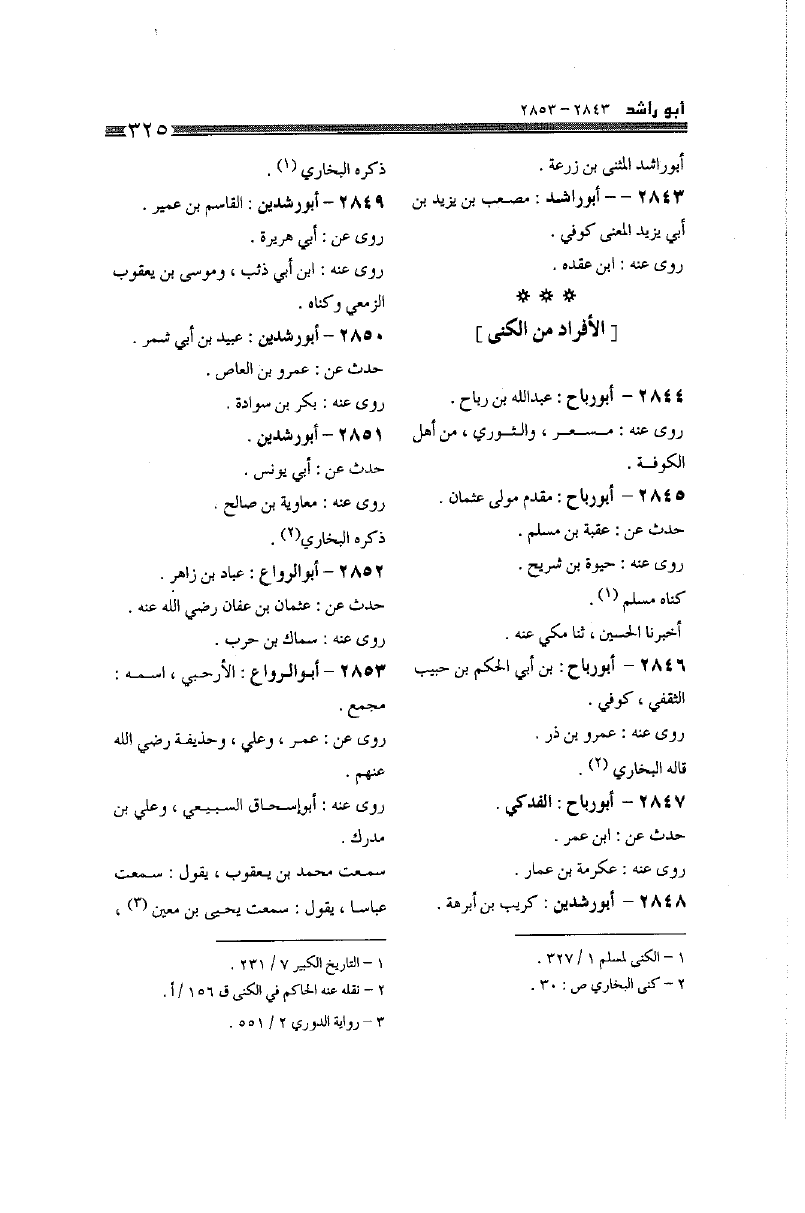 أبو راشد ٢٨٤٣ – ٢٨٥٣
٣٢٥
أبوراشد المثنى بن زرعة .
٢٨٤٣ – – أبوراشد : مصعب بن يزيد بن
أبي يزيد المعنى كوفي .
روى عنه : ابن عقده .
* * *
[ الأفراد من الكنى ]
٢٨٤٤ – أبورباح : عبدالله بن رباح .
روى عنه : مسعر ، والثوري ، من أهل
الكوفة .
٢٨٤٥ – أبورباح : مقدم مولى عثمان .
حدث عن : عقبة بن مسلم .
روى عنه : حيوة بن شريح .
كناه مسلم (١) .
أخبرنا الحسين ، ثنا مكي عنه .
٢٨٤٦ – أبورباح : بن أبي الحكم بن حبيب
الثقفي ، كوفي .
روى عنه : عمرو بن ذر .
قاله البخاري (٢) .
٢٨٤٧ – أبورباح : الفدكي .
حدث عن : ابن عمر .
روى عنه : عكرمة بن عمار .
٢٨٤٨ – أبورشدين : كريب بن أبرهة .
١ – الكنى لمسلم ١ / ٣٢٧ .
٢ – كنى البخاري ص : ٣٠ .
ذكره البخاري (١) .
٢٨٤٩ – أبورشدين : القاسم بن عمير .
روى عن : أبي هريرة .
روى عنه : ابن أبي ذئب ، وموسى بن يعقوب
الزمعي وكناه .
٢٨٥٠ – أبورشدين : عبيد بن أبي شمر .
حدث عن : عمرو بن العاص .
روى عنه : بكر بن سوادة .
٢٨٥١ – أبورشدين .
حدث عن : أبي يونس .
روى عنه : معاوية بن صالح .
ذكره البخاري(٢) .
٢٨٥٢ – أبوالرواع : عباد بن زاهر .
حدث عن : عثمان بن عفان رضي الله عنه .
روى عنه : سماك بن حرب .
٢٨٥٣ – أبوالرواع : الأرحبي ، اسمه :
مجمع .
روى عن : عمر ، وعلي ، وحذيفة رضي الله
عنهم .
روى عنه : أبوإسحاق السبيعي ، وعلي بن
مدرك .
سمعت محمد بن يعقوب ، يقول : سمعت
عباسا ، يقول : سمعت يحيى بن معين (٣) ،
١ – التاريخ الكبير ٧ / ٢٣١ .
٢ – نقله عنه الحاكم في الكنى ق ١٥٦ / أ .
٣ – رواية الدوري ٢ / ٥٥١ .